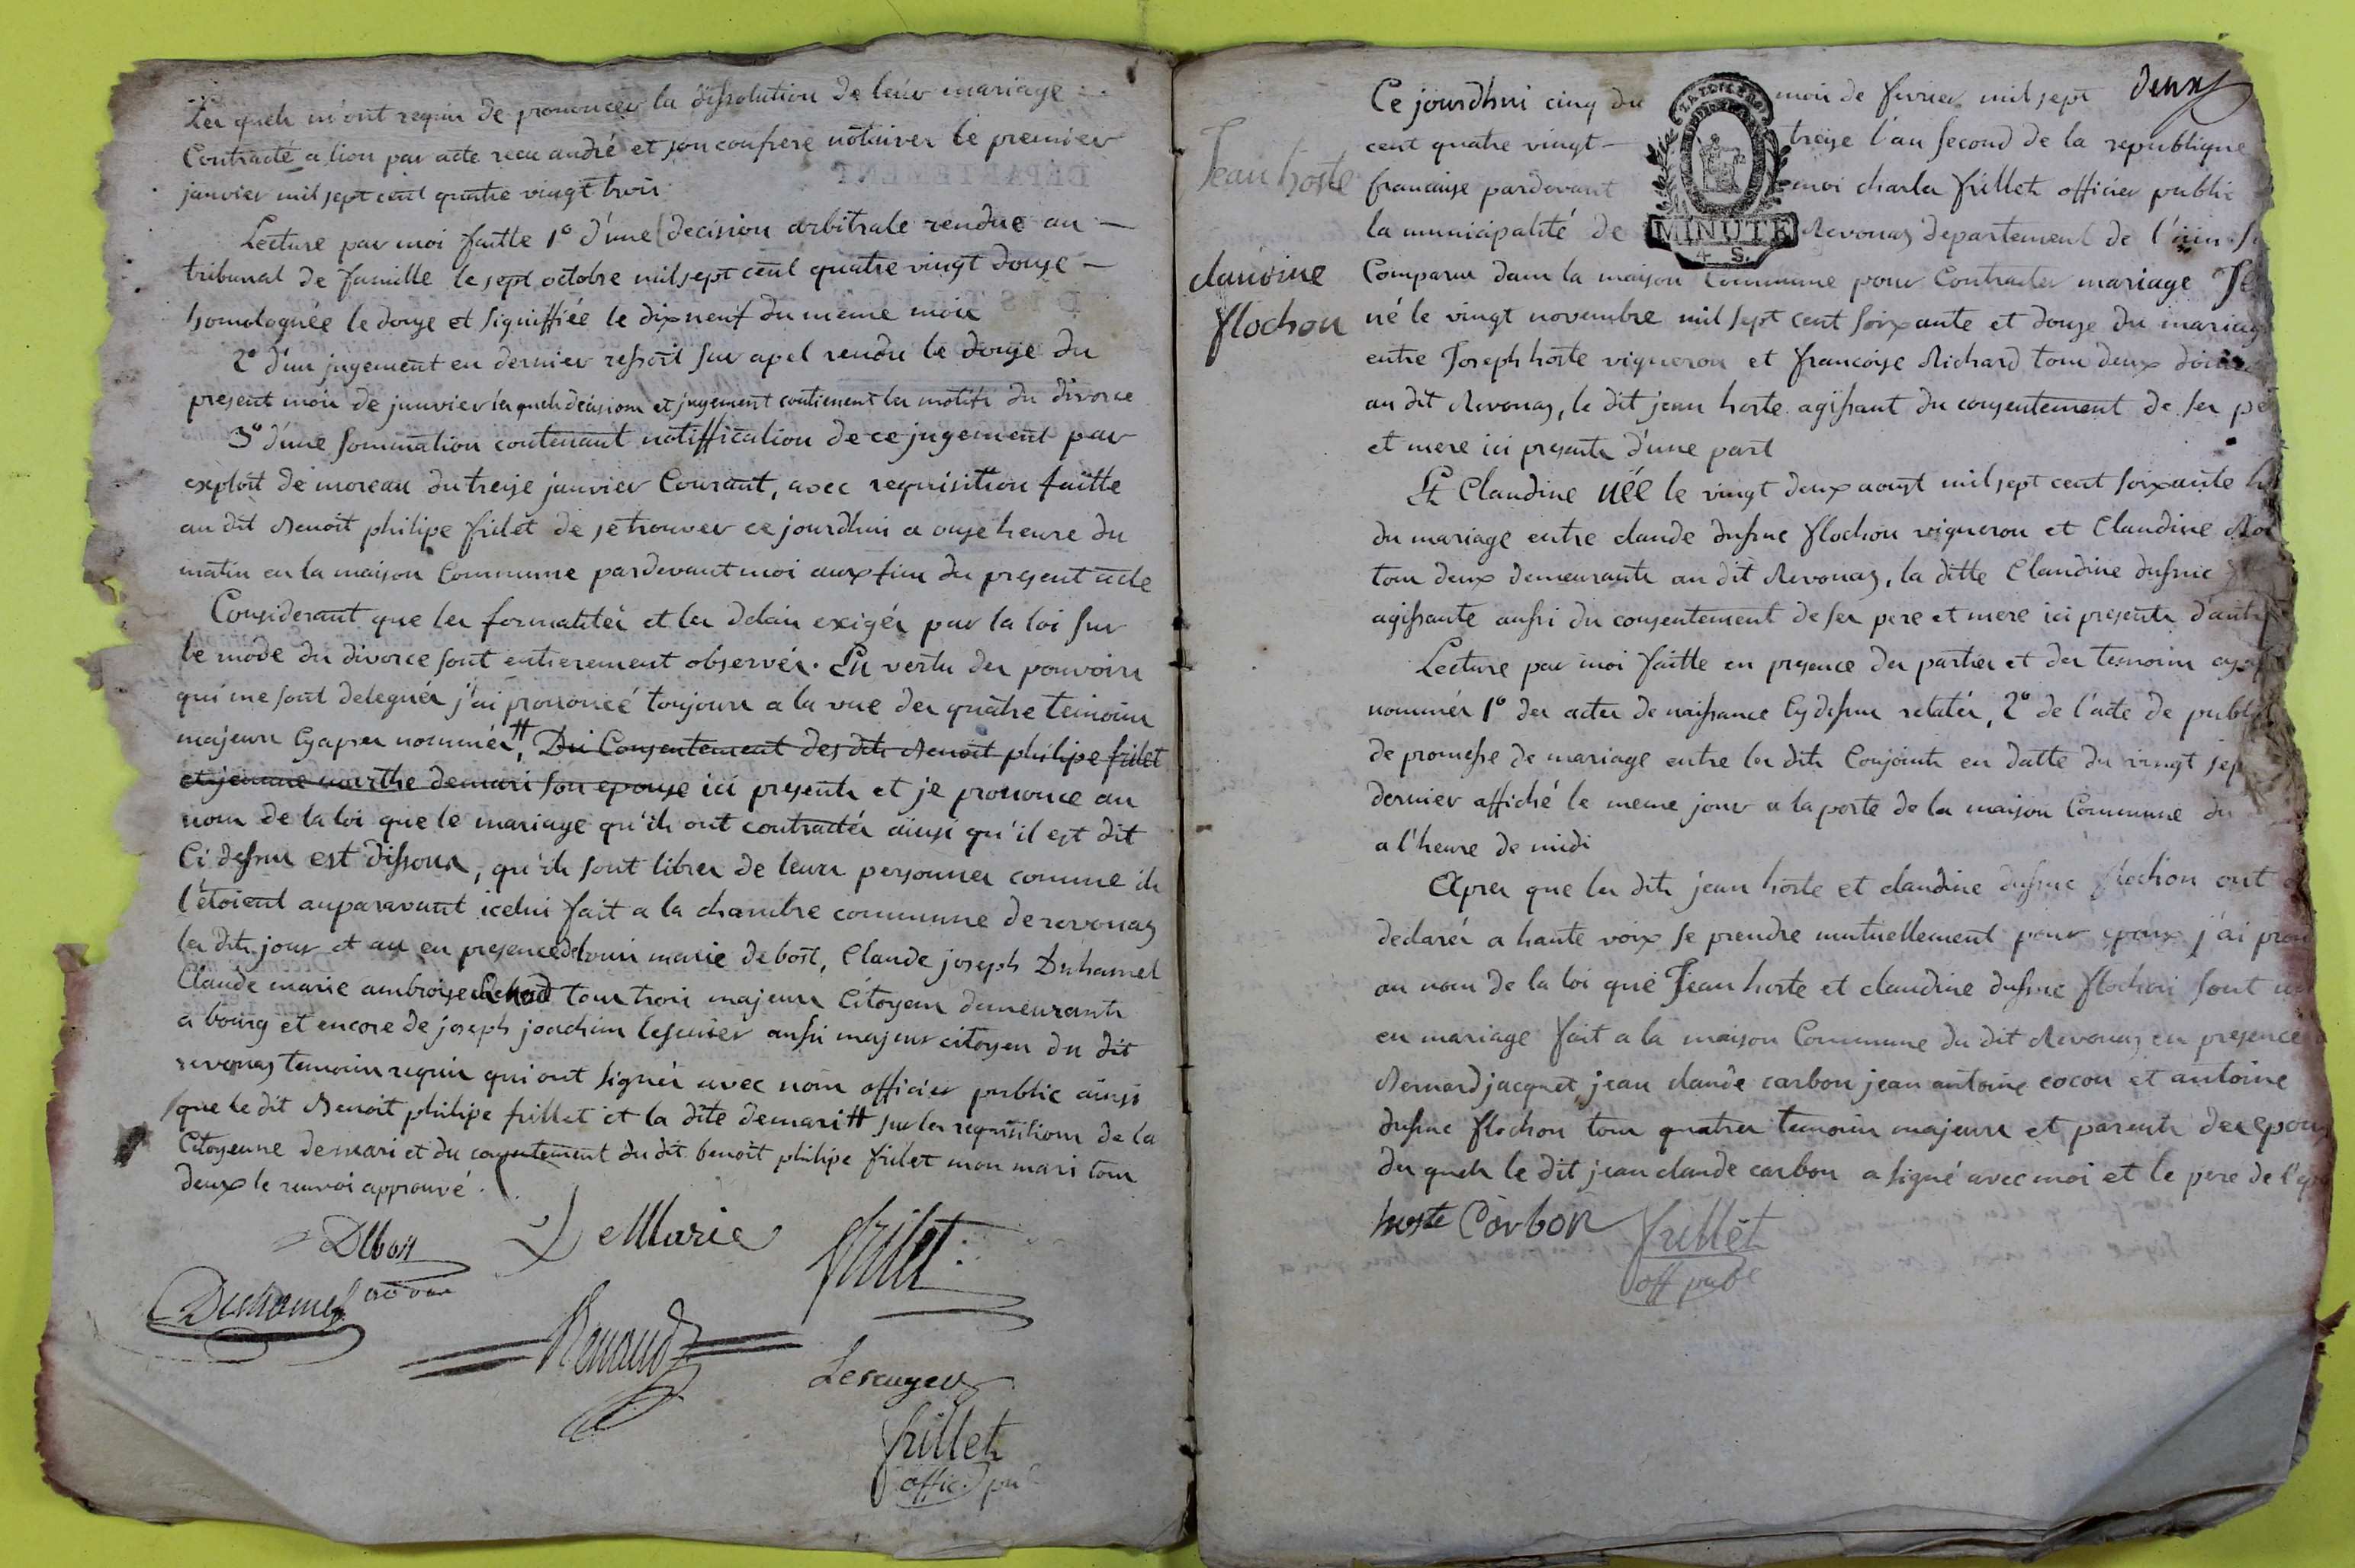 Les quels m'ont requis de prononcer la dissolution de leur mariage
Contracté a lion par acte recu andré et son confrere notaires le premier
janvier mil sept cent quatre vingt trois
Lecture par moi faitte 1° d'une decision arbitrale rendue au
tribunal de famille le sept octobre mil sept cent quatre vingt douze
homologuée le douze et signiffiée le dix neuf du meme mois
2° d'un jugement en dernier ressort sur apel rendu le douze du
present mois de janvier les quels decisions et jugement contienent les motifs du divorce
3° d'une sommation contenant notiffication de ce jugement par
exploit de moreau du treize janvier Courant, avec requisition faitte
au dit Benoit philipe frilet de se trouver ce jourdhui a onze heure du
matin en la maison Commune pardevant moi aux fins du present acte
Considerant que les formalités et les delais exigés par la loi sur
le mode du divorce sont entierement observés. En vertu des pouvoirs
qui me sont delegués j'ai prononcé toujours a la vue des quatre temoins
majeurs Cyapres nommés, Du Consentement des dits Benoit philipe frilet
et jeanne marthe demari son epouse ici presents et je prononce au
nom de la loi que le mariage qu'ils ont contractés ainsi qu'il est dit
Ci dessus est dissous, qu'ils sont libres de leurs personnes comme ils
l'etoient auparavant icelui fait a la chambre commune de revonas
les dits jour et an en presence de louis marie debost, Claude joseph Duhamel
Claude marie ambroise Renaud tous trois majeurs Citoyens demeurants
a bourg et encore de joseph joachim lescuier aussi majeur citoyen du dit
revonas temoins requis qui ont signés avec nous officier public ainsi
que le dit Benoit philipe frillet et la dite demari # sur les requisitions de la
Citoyenne demari et du consentement du dit benoit philipe frilet mon mari tous
deux le renvoi approuvé.
Debost
DeMarie
frilet
Duchamel
Renaud
Lescuyer
frillet
offic. pu
deux
Ce jourdhui cinq du mois de fevrier mil sept
cent quatre vingt treize l'an second de la republique
francaise pardevant moi charles frillet officier public
la municipalité de Revonas departement de l'ain
MINUTE
4 S.
Jean hoste
claudine
flochon
Comparu dans la maison Commune pour Contracter mariage
né le vingt novembre mil sept cent soixante et douze du mariage
entre Joseph hoste vigneron et francoise Richard tous deux
au dit Revonas, le dit jean hoste agissant du consentement de ses
et mere ici presents d'une part
Et Claudine née le vingt deux aoust mil sept cent soixante
du mariage entre claude dufour flochon vigneron et Claudine
tous deux demeurants au dit Revonas, la ditte Claudine dufour
agissante aussi du consentement de ses pere et mere ici presents
Lecture par moi faitte en presence des parties et des temoins
nommés 1° des actes de naissance Cy dessus relatés, 2° de l'acte de
de promesse de mariage entre les dits Conjoints en datte du vingt
dernier affiché le meme jour a la porte de la maison Commune du
a l'heure de midi
Apres que les dits jean hoste et claudine dufour flochon ont
declarés a haute voix se prendre mutuellement pour epoux j'ai
au nom de la loi que Jean hoste et claudine dufour flochon sont
en mariage fait a la maison Commune du dit Revonas en presence
Bernard jacquet, jean claude carbon jean antoine cocon et antoine
dufour flochon tous quatres temoins majeurs et parents des epoux
du quels le dit jean claude carbon a signé avec moi et le pere de
hoste Carbon frillet
off pub